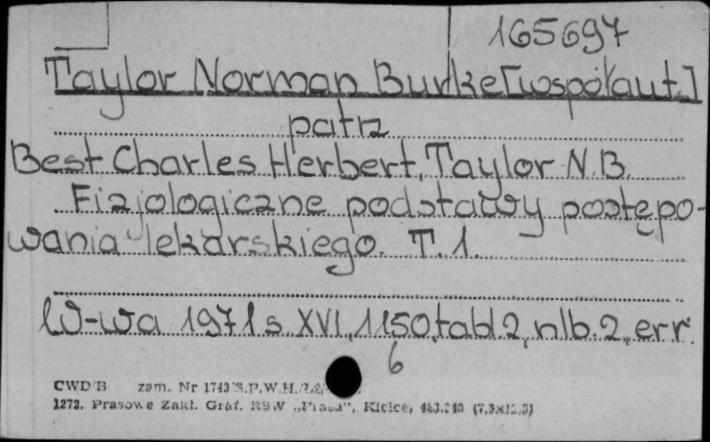 165697
Taylor Norman Burke [współaut.]
patrz
Best Charles Herbert, Taylor N.B.
Fizjologiczne podstawy postępo-
wania lekarskiego. T. 1.
W-wa 1971 s. XVI, 1150, tabl. 2, nlb. 2, err.
6
CWD B zam. Nr 1743 P.W.H.
1272. Prasowe Zakł. Graf. RSW „Prasa", Kielce, (7,5x12,5)